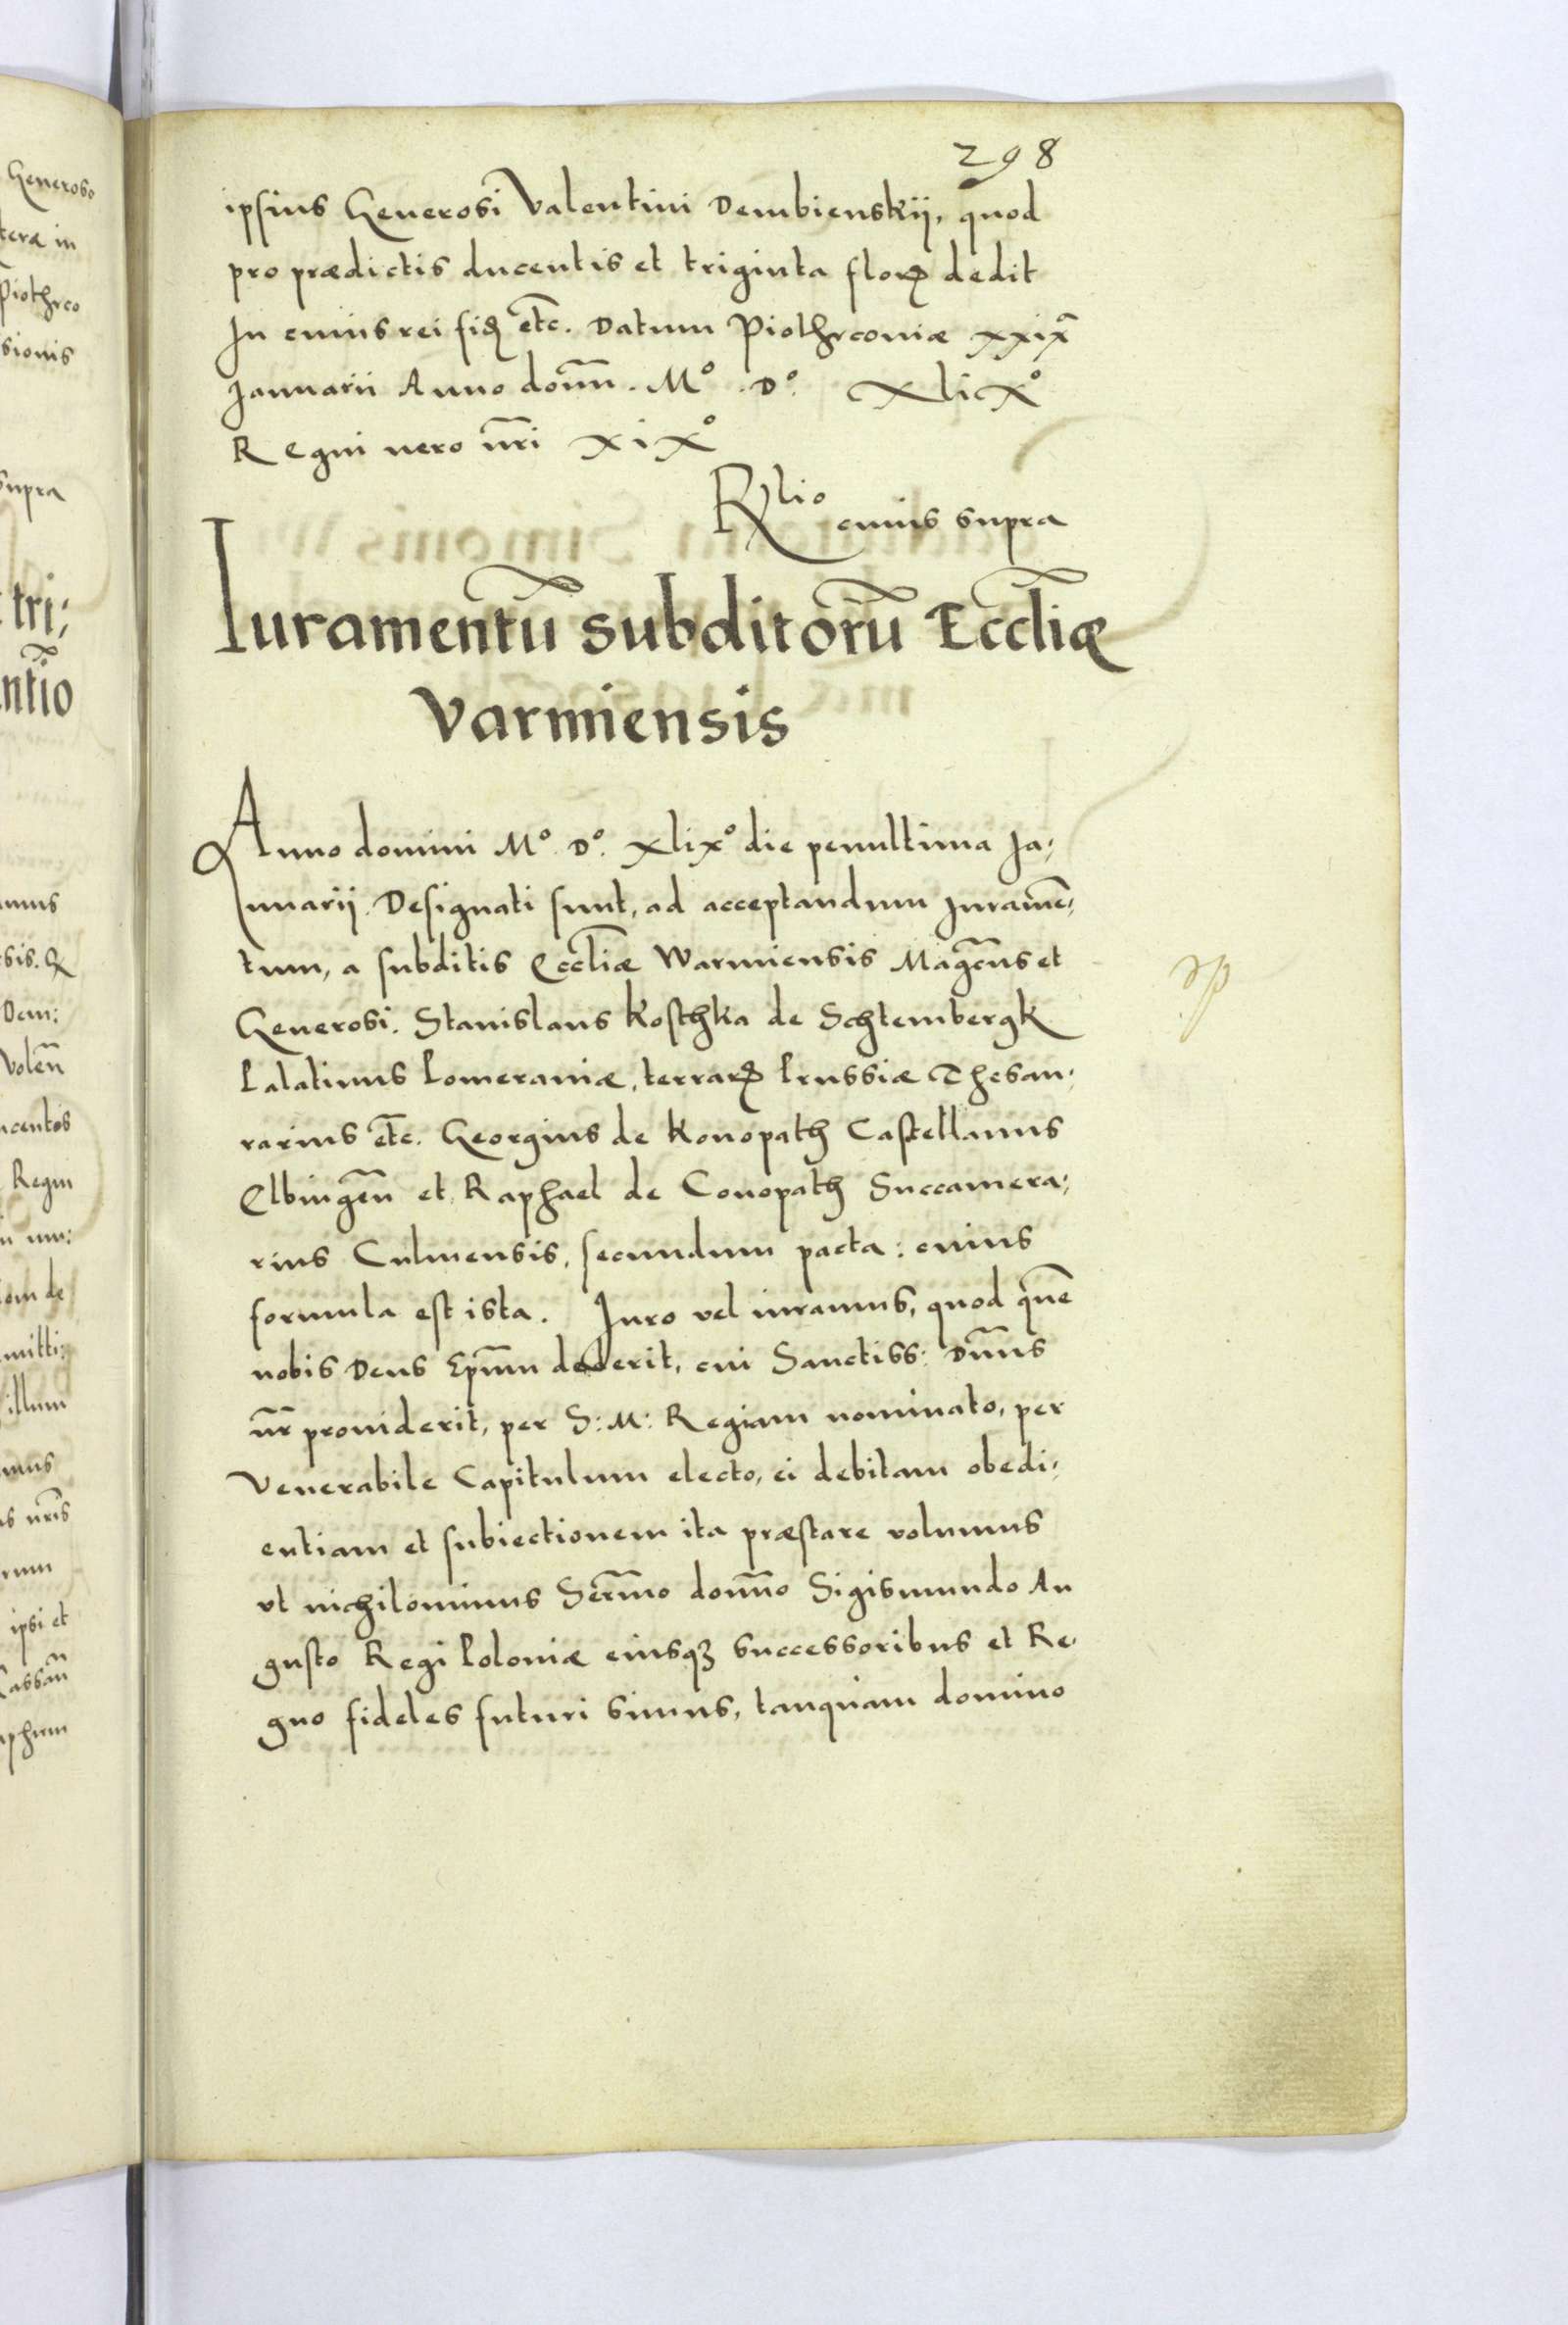 298
ipsius Generosi Valentini Dembienskij, quod
pro prædictis ducentis et triginta floꝝ dedit
In cuius rei fid etc̄. Datum Piothrcoviæ xxixᵃ
Januarii Anno domn̄. Mº. Dº. XliXº
Regni vero nr̄i XiXº
Rlio cuius supra
Iuramentū subditorū Eccliæ
Varmiensis
Anno domini Mº. Dº. Xlixº die penultima Ja-
nuarij. Designati sunt, ad acceptandum Juramē-
tum, a subditis Eccl̄iæ Warmiensis Magc̄us et
Generosi. Stanislaus Kosthka de Schtembergk
Palatinus Pomeraniæ, terrarꝝ Prussiæ Thesau-
rarius etc̄. Georgius de Konopath Castellanus
Elbingen̄ et Raphael de Conopath Succamera-
rius Culmensis, secundum pacta: cuius
formula est ista. Juro vel iuramus, quod quē
nobis Deus Ep̄um dederit, cui Sanctiss: Dn̄us
nr̄ providerit, per S: M: Regiam nominato, per
Venerabile Capitulum electo, ei debitam obedi-
entiam et subiectionem ita præstare volumus
vt nichilominus Serm̄o domn̄o Sigismundo Au
gusto Regi Poloniæ eiusqꝫ successoribus et Re-
gno fideles futuri simus, tanquam domino